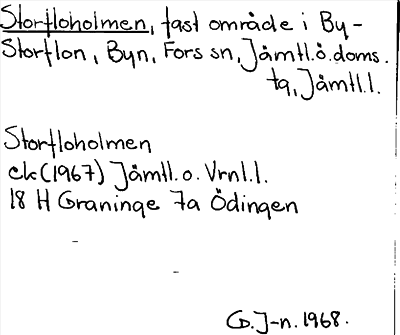 Storfloholmen, fast område i By-
Storflon, Byn, Fors sn, Jämtl.ö.doms.
tg, Jämtl.l.
Storfloholmen
ek (1967) Jämtl. o. Vrnl.l.
18 H Graninge 7a Ödingen
G. J-n. 1968.